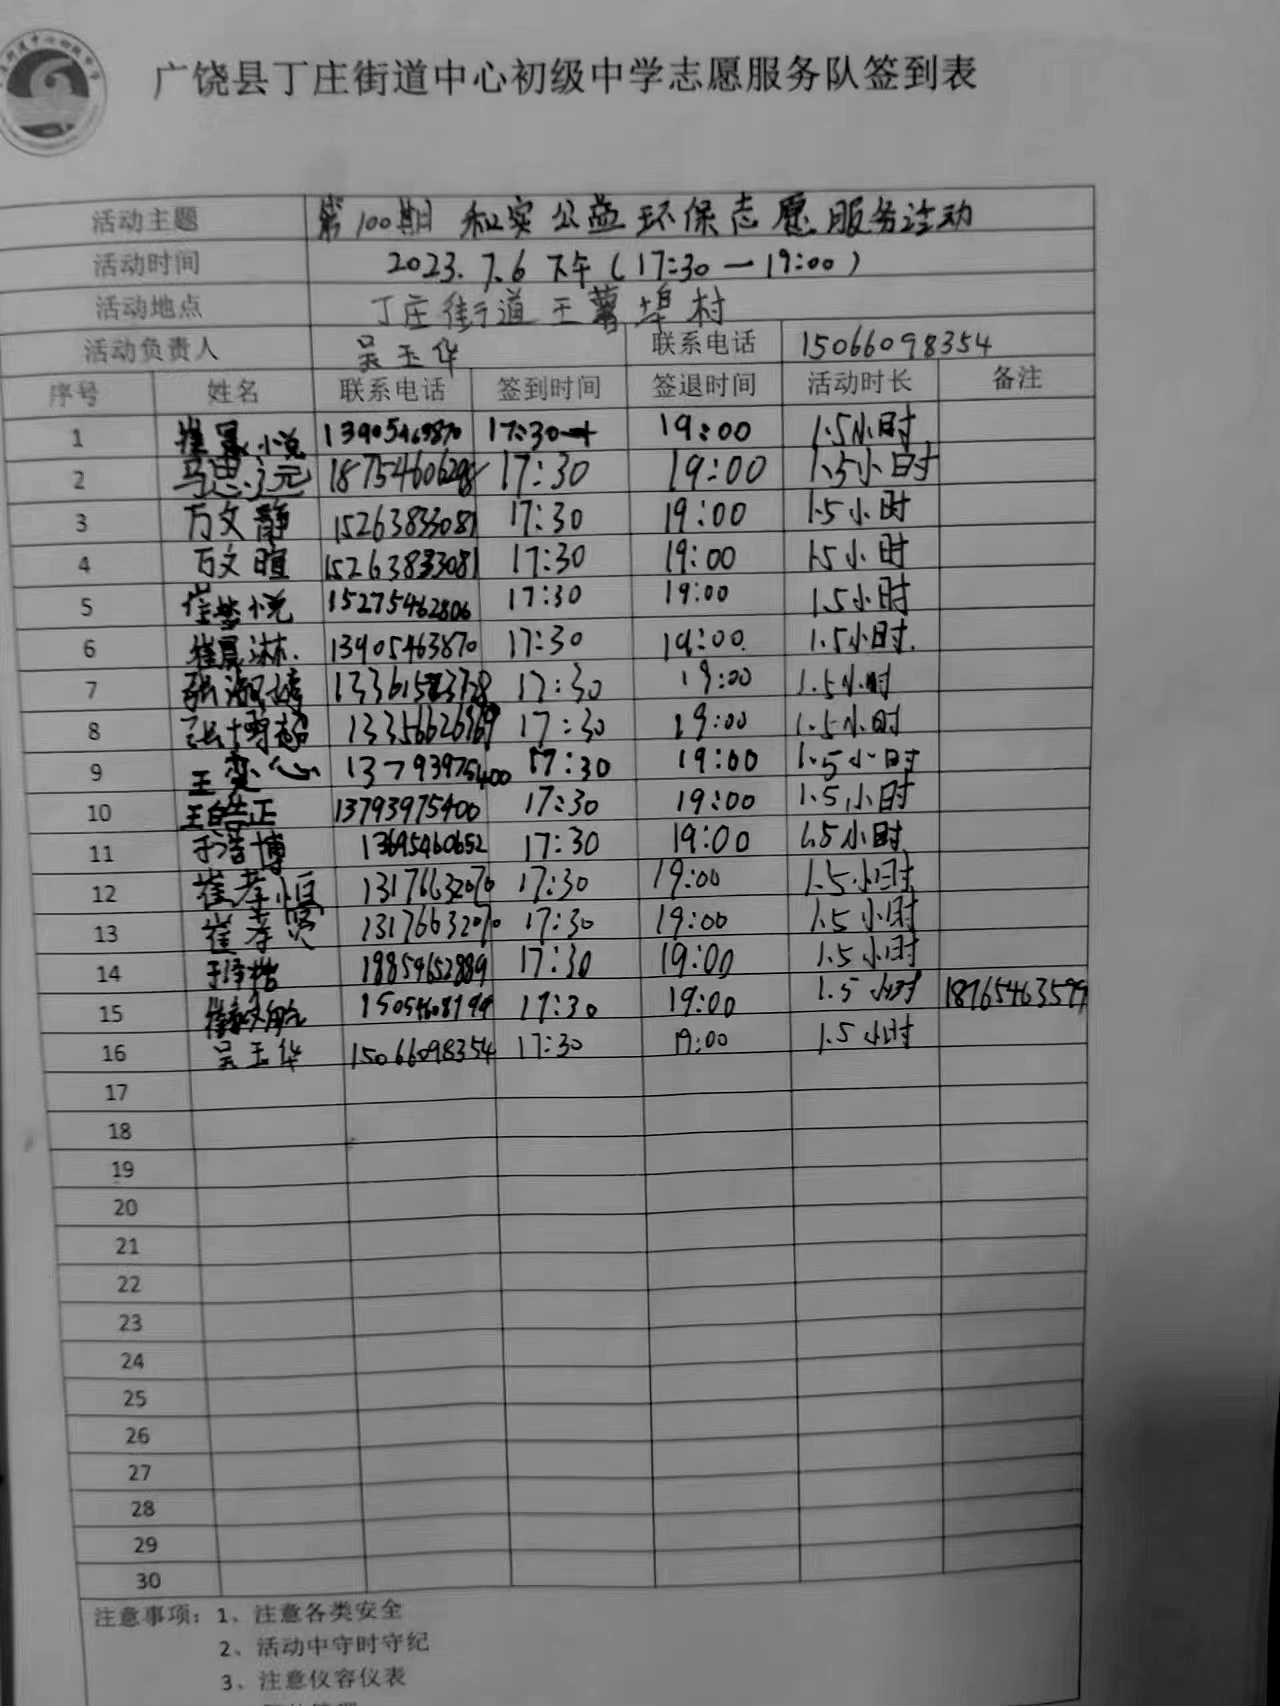 广饶县丁庄街道中心初级中学志愿服务队签到表
活动主题 第100期 和实公益环保志愿服务活动
活动时间 2023.7.6 下午(17:30—19:00)
活动地点 丁庄街道王薯埠村
活动负责人 吴玉华 联系电话 15066098354
序号 姓名 联系电话 签到时间 签退时间 活动时长 备注
1 17:30 19:00 1.5小时
2 马思元 18754606298 17:30 19:00 1.5小时
3 万文静 15263833081 17:30 19:00 1.5小时
4 万文暄 15263833081 17:30 19:00 1.5小时
5 15275462806 17:30 19:00 1.5小时
6 崔晨淋 13905463870 17:30 19:00 1.5小时
7 17:30 19:00 1.5小时
8 张博超 17:30 19:00 1.5小时
9 王奕心 13793975400 17:30 19:00 1.5小时
10 王皓正 13793975400 17:30 19:00 1.5小时
11 于浩博 13695460652 17:30 19:00 1.5小时
12 崔孝恒 13176632070 17:30 19:00 1.5小时
13 崔孝贤 13176632070 17:30 19:00 1.5小时
14 18854652889 17:30 19:00 1.5小时
15 17:30 19:00 1.5小时
16 吴玉华 15066098354 17:30 19:00 1.5小时
17
18
19
20
21
22
23
24
25
26
27
28
29
30
注意事项：1、注意各类安全
2、活动中守时守纪
3、注意仪容仪表